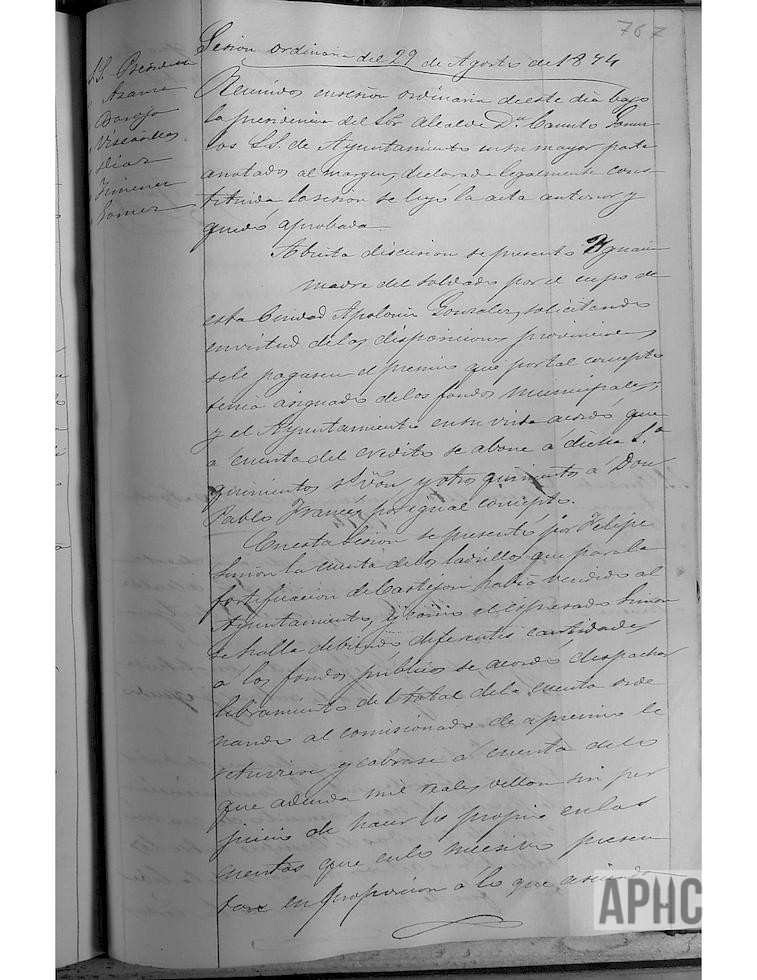 767
Sesion ordinaria del 29 de Agosto de 1874
S.S. Presidente
Azama
Borojo
Viscarillas
Diaz
Jimenez
Gomez
Reunidos en sesion ordinaria de este dia bajo
la presidencia del Sor Alcalde Dn Canuto Gomez
los S.S. de Ayuntamiento en su mayor parte
anotados al margen, declarada legalmente cons-
tituida la sesion se leyó la acta anterior y
quedó aprobada
Abierta discusion se presentó Ygnacia
madre del soldado por el cupo de
esta Ciudad Apolonia Gonzalez, solicitando
en virtud de las disposiciones provinciales
se le pagasen el premio que por tal concepto
tenia asignado de los fondos municipales,
y el Ayuntamiento en su vista acordó que
a cuenta del credito se abone a dicha Sª
quinientos rs von y otros quinientos a Don
Pablo Francés por igual concepto.
En esta sesion se presentó por Felipe
Simon la cuenta de los ladrillos que para la
fortificacion de Castejon habia vendido al
Ayuntamiento, y como el espresado Simon
se halla debiendo diferentes cantidades
á los fondos publicos se acordó despachar
libramiento del total de la cuenta orde
nando al comisionado de apremio le
retuviese y cobrase a cuenta de lo
que adeuda mil reales vellon sin per
juicio de hacer lo propio en las
cuentas que en lo sucesivo presen
tare en proporcion a lo que asciendan
APHC